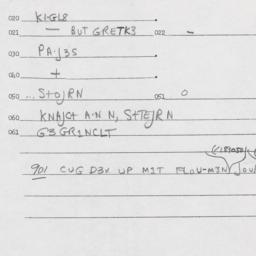 020 K1-GL8
021 — BUT GRETK3 022 -
030 PA-J3S
040 +
050 ... S+OJRN 051 O
060 KNAJC+ A-N N, S+TEJRN
061 G3GR1NCLT
901 CUG D3V UP M1T FLOU-M1N JOU